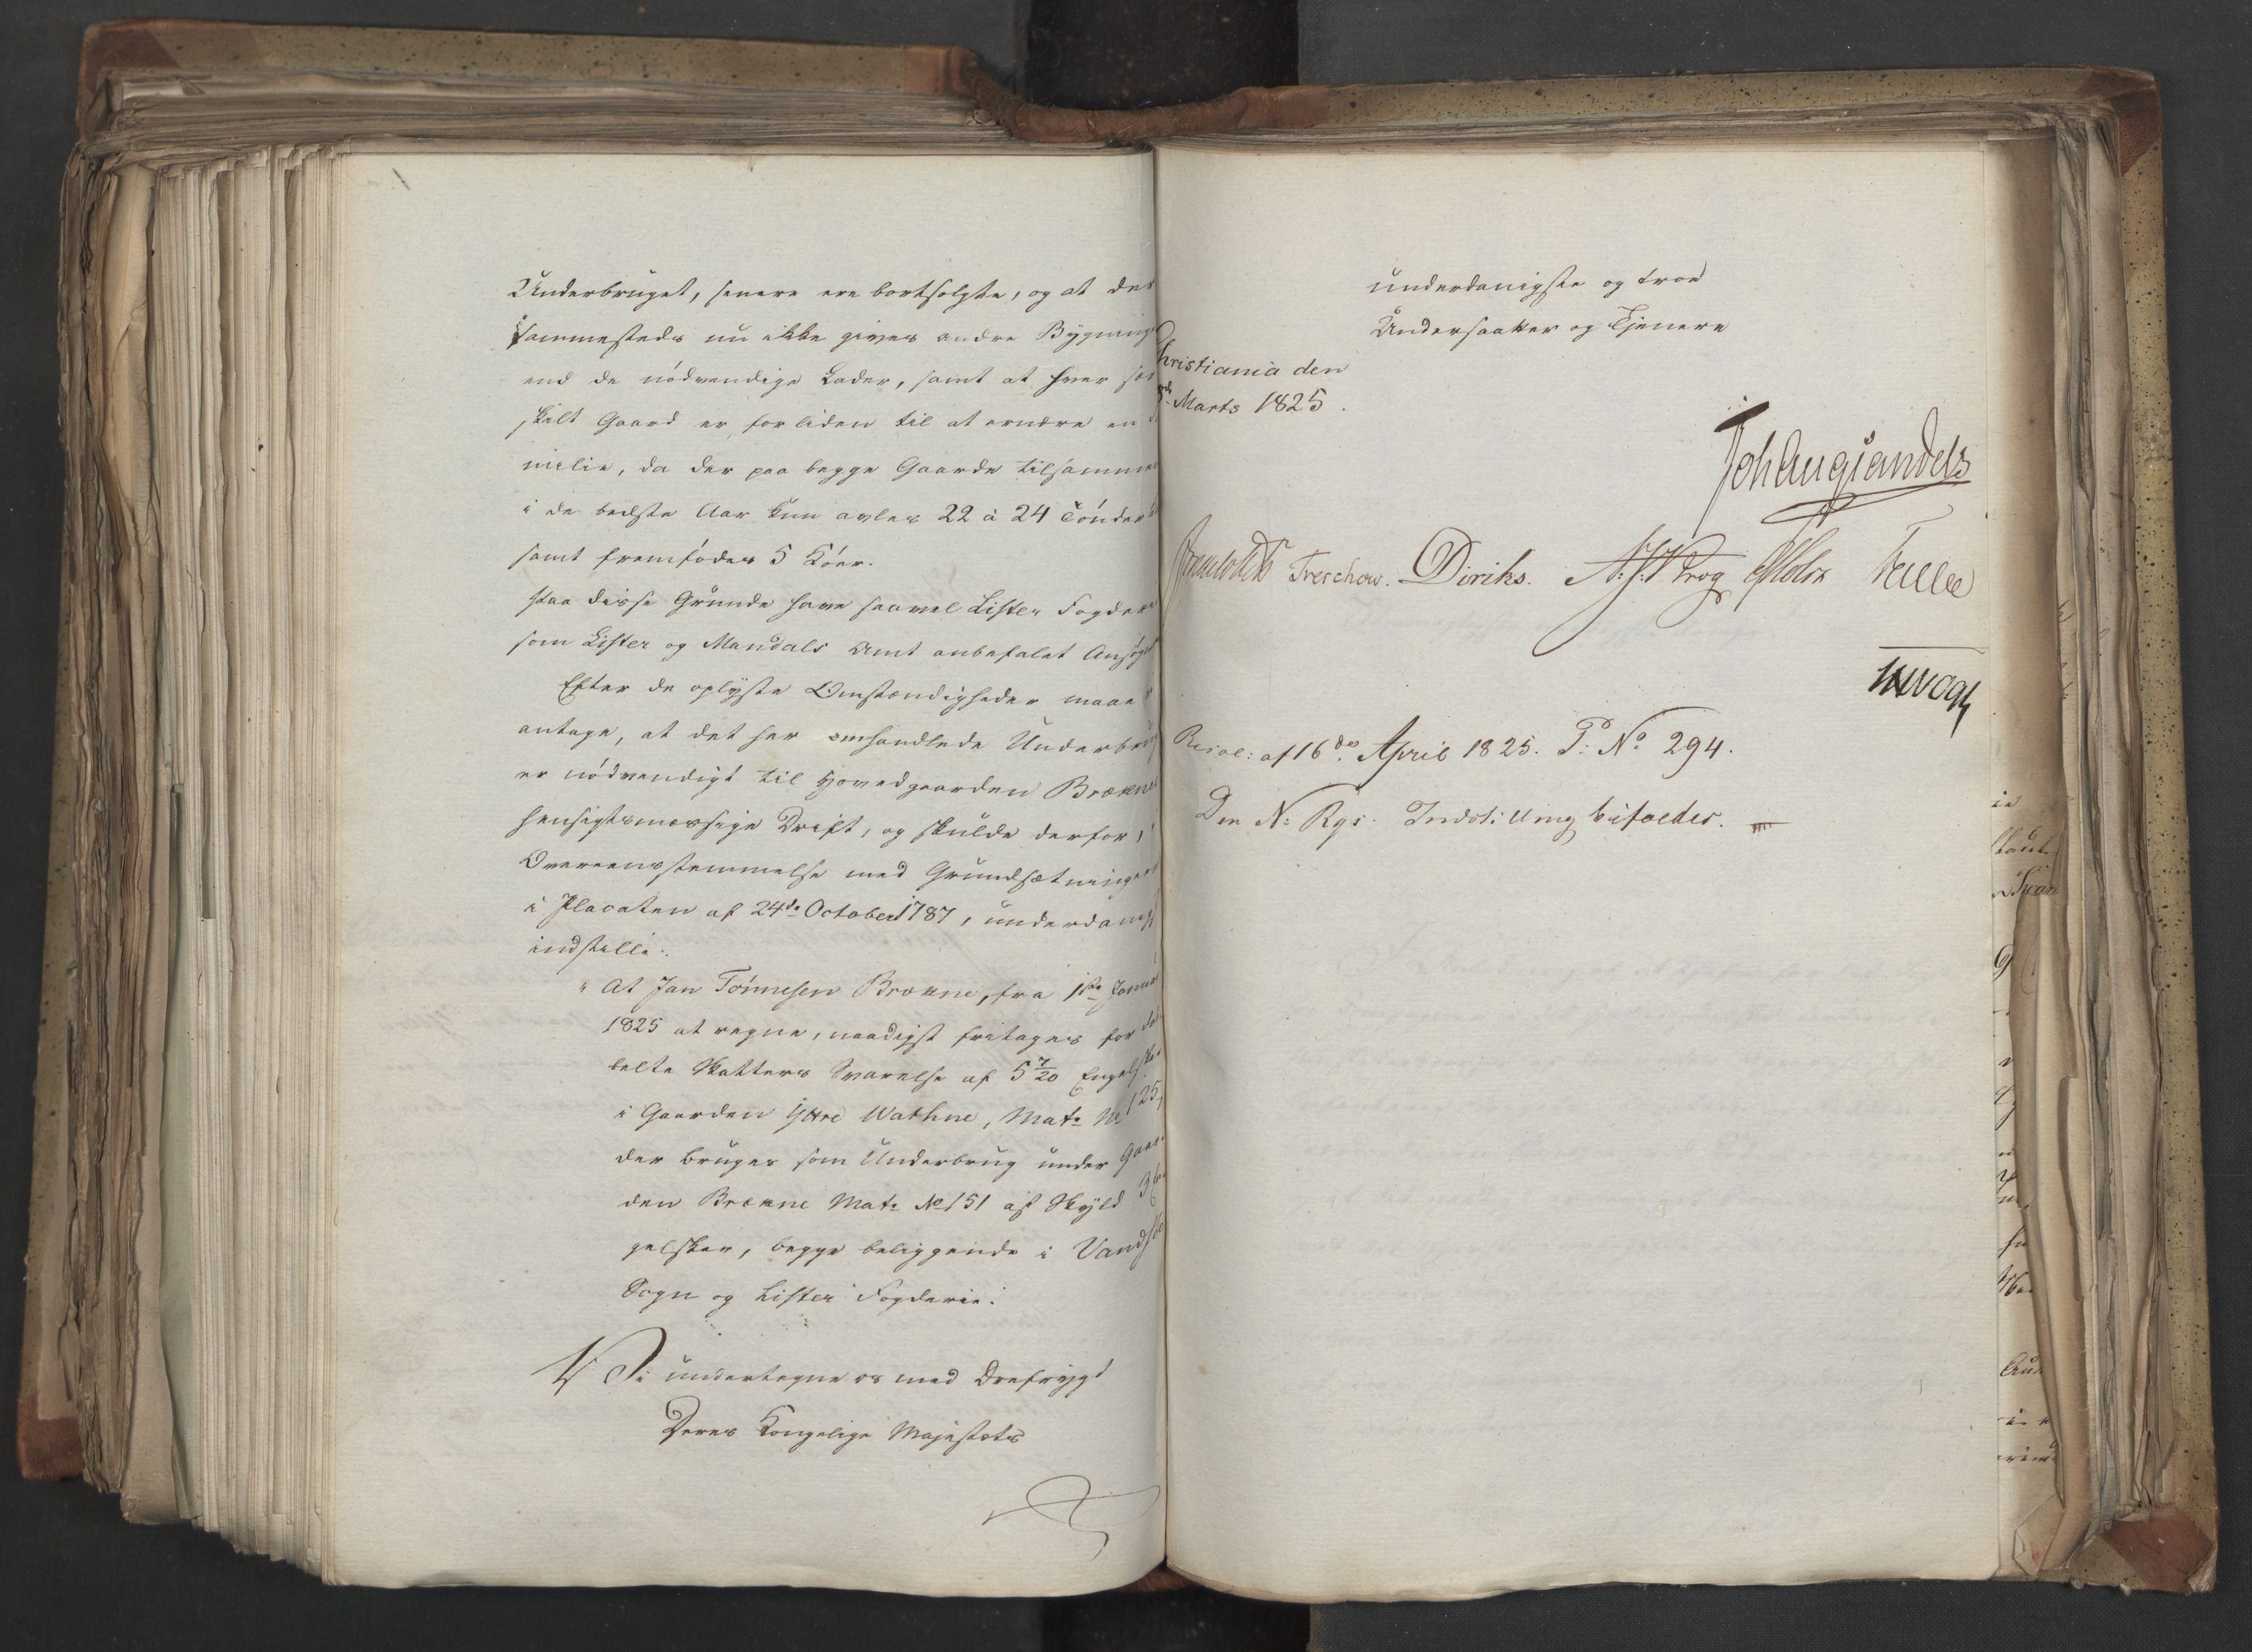 Underbruget, senere ere bortsolgte, og at der
sammesteds nu ikke gives andre Bygning
end de nödvendige Lader, samt at hver sær
skilt Gaard er forliden til at ernære en
milie, da der paa begge Gaarde tilsammen
i de bedste Aar kun avles 22 à 24 Tönder
samt fremfödes 5 Köer.
Paa disse Grunde have saavel Lister Fogderi
som Lister og Mandals Amt anbefalet Ansög
Efter de oplyste Omstændigheder maae
antage, at det her omhandlede Underbrug
er nödvendigt til Hovedgaarden Brækne
hensigtsmæssige Drift, og skulde derfor i
Overeensstemmelse med Grundsætningen
i Placaten af 24de October 1787, underdanigst
indstille:
" At Jan Tönnesen Brækne, fra 1ste Januar
1825 at regne, naadigst fritages for dob
belte Skatters Svarelse af 5 7/20 Engelsker
i Gaarden Ytre Wathne, Matr No 125,
der bruges som Underbrug under Gaar
den Brækne Matr No 151 af Skyld 3 En
gelsker, begge beliggende i Vandsø
Sogn og Lister Fogderie.
Vi undertegne os med Drefrygt
Deres Kongelige Majestæts
underdanigste og troe
Undersaatter og Tjenere
Christiania den
Marts 1825.
Joh Aug Sandels
Treschow. Diriks. Krog Holst Fasting
Resol: af 16des April 1825. P: No 294.
Den N: Rgs. Indstilling bifaldes.